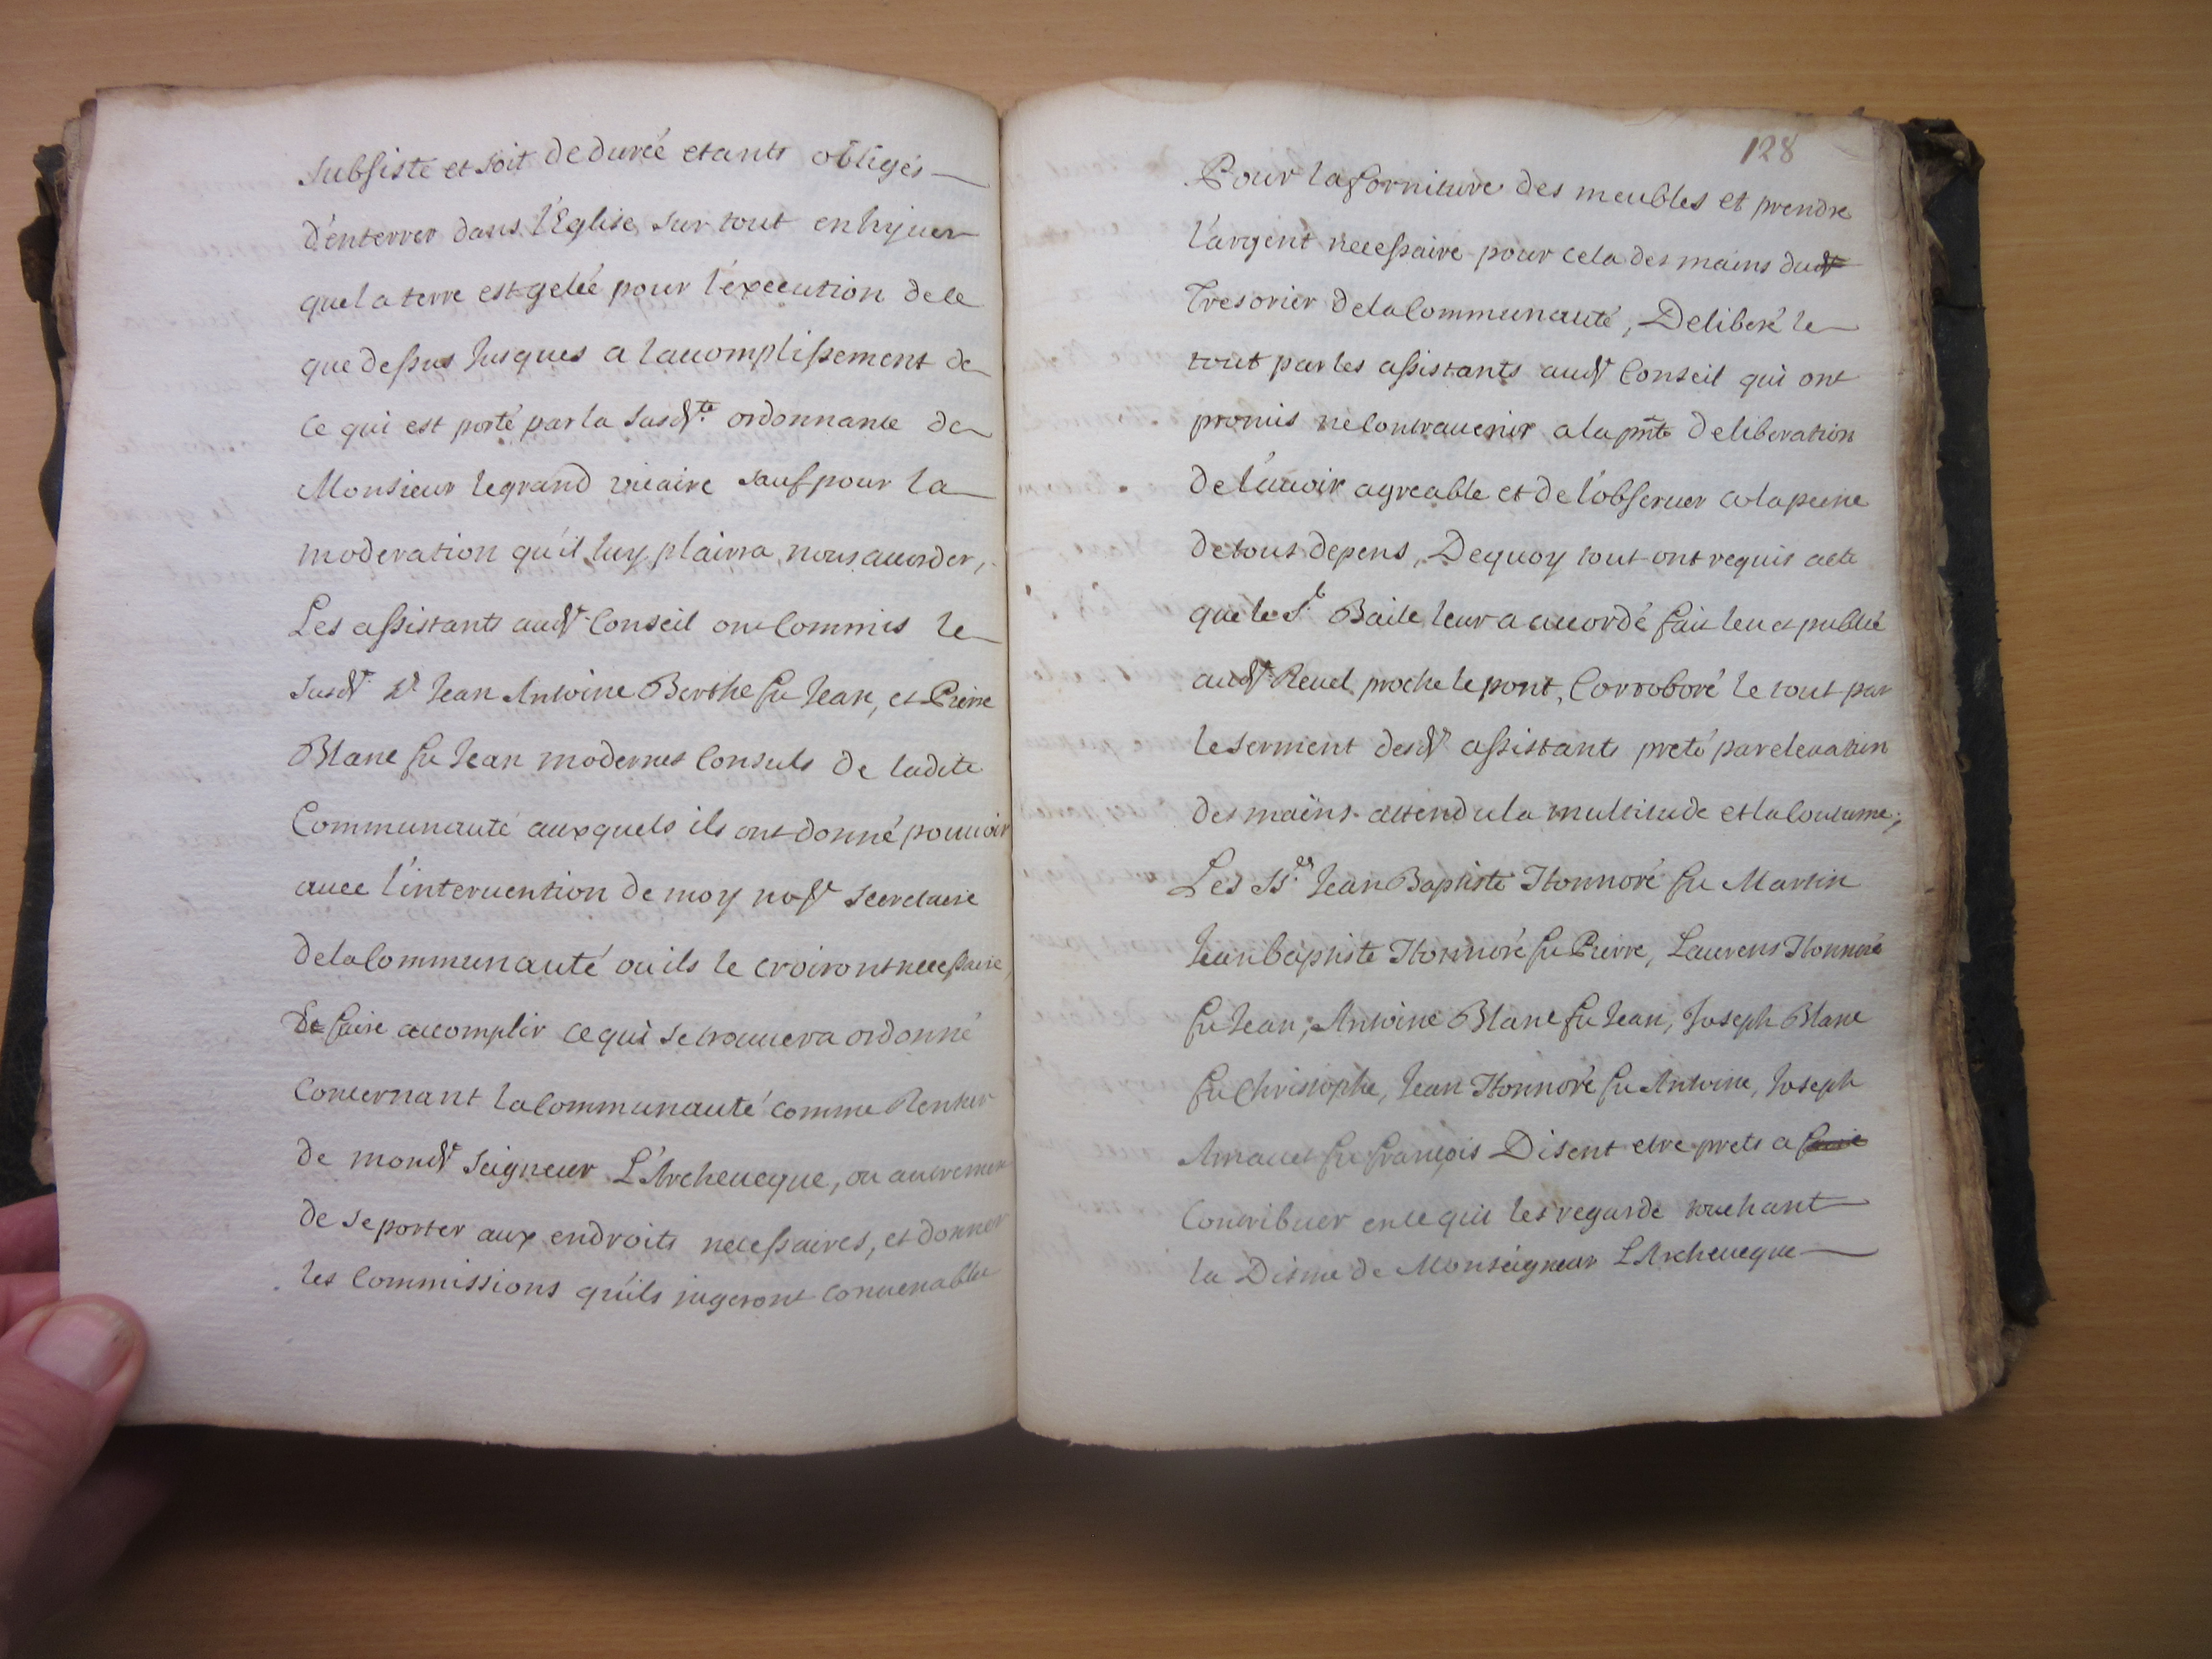 subsiste et soit de durée etants obligés
d'enterrer dans l'Eglise sur tout en hyuer
que la terre est gelée pour l'execution de ce
que dessus Jusques a laccomplissement de
ce qui est porté par la susdte ordonnance de
Monsieur le grand vicaire sauf pour la
moderation qu'il luy plairra nous accorder,
Les assistants audt Conseil ont Commis le
susdt Sr Jean Antoine Berthe fu Jean, et Pierre
Blanc fu Jean modernes Consuls de ladite
Communauté auxquels ils ont donné pouuoir
auec l'interuention de moy nore secretaire
de la Communauté ou ils le croiront necessaire,
De faire accomplir ce qui se trouuera ordonné
Concernant la Communauté comme Rentier
de mondt seigneur L'Archeueque, ou autrement
de se porter aux endroits necessaires, et donner
les Commissions qu'ils jugeront Conuenables
128
Pour la forniture des meubles et prendre
l'argent necessaire pour cela des mains dudt
Tresorier de la Communauté, Deliberé le
tout par les assistants audt Conseil qui ont
promis ne Contrauenir a la pnte deliberation
de l'auoir agreable et de l'obseruer a la peine
de tous depens, De quoy tout ont requis acte
que le Sr Baile leur a accordé fait leu et publié
audt Reuel proche le pont, Corroboré le tout par
le serment desdt assistants preté par eleuation
des mains attendu la multitude et la Coutume;
Les Srs Jean Baptiste Honnoré fu Martin
Jean baptiste Honnoré fu Pierre, Laurens Honnoré
fu Jean, Antoine Blanc fu Jean, Joseph Blanc
fu Christophe, Jean Honnoré fu Antoine, Joseph
Arnaud fu françois Disent etre prets a faire
Contribuer en ce qui les regarde touchant
la Disme de Monseigneur L'Archeueque